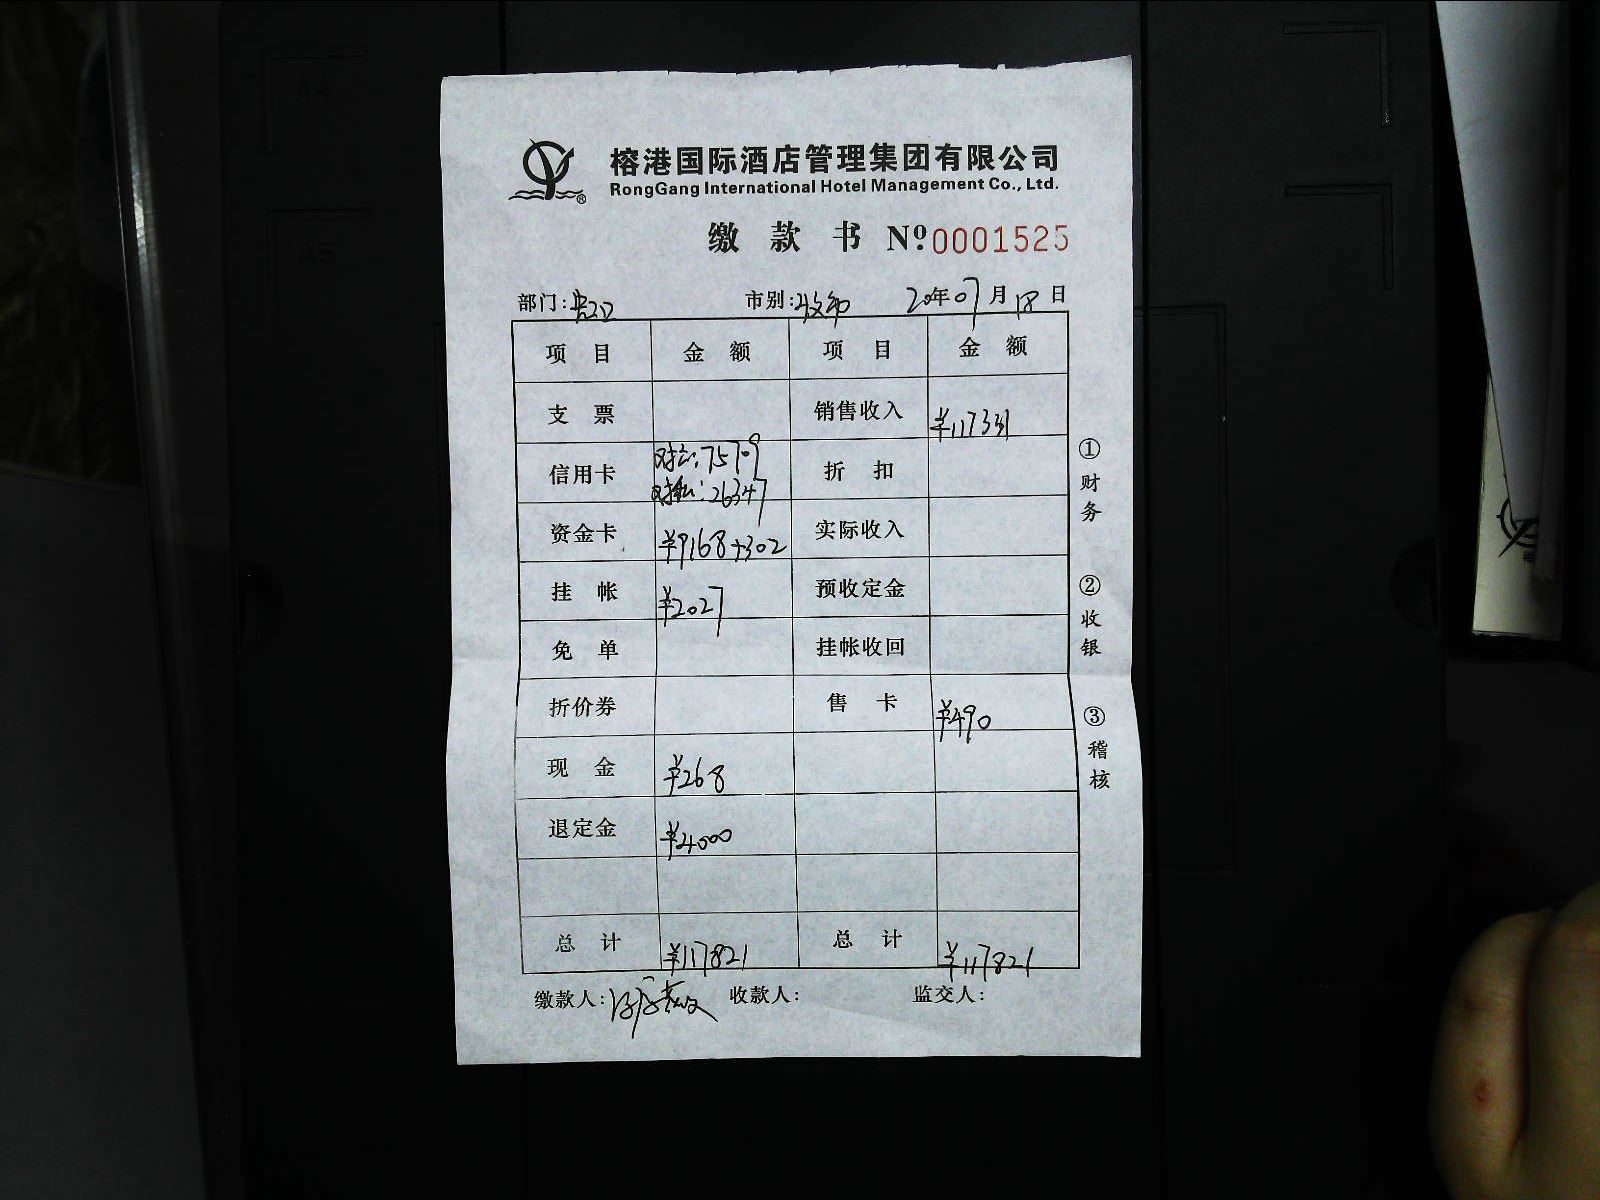 榕港国际酒店管理集团有限公司
RongGang International Hotel Management Co., Ltd.
缴款书 Nº 0001525
部门: 市别: 20年07月18日
项目 金额 项目 金额
支票 销售收入 ¥117331
信用卡 对公:75709 对私:26347 折扣
资金卡 ¥9168+302 实际收入
挂帐 ¥2027 预收定金
免单 挂帐收回
折价券 售卡 ¥490
现金 ¥268
退定金 ¥4000
总计 ¥117821 总计 ¥117821
缴款人: 收款人: 监交人:
①财务
②收银
③稽核
A4
A5